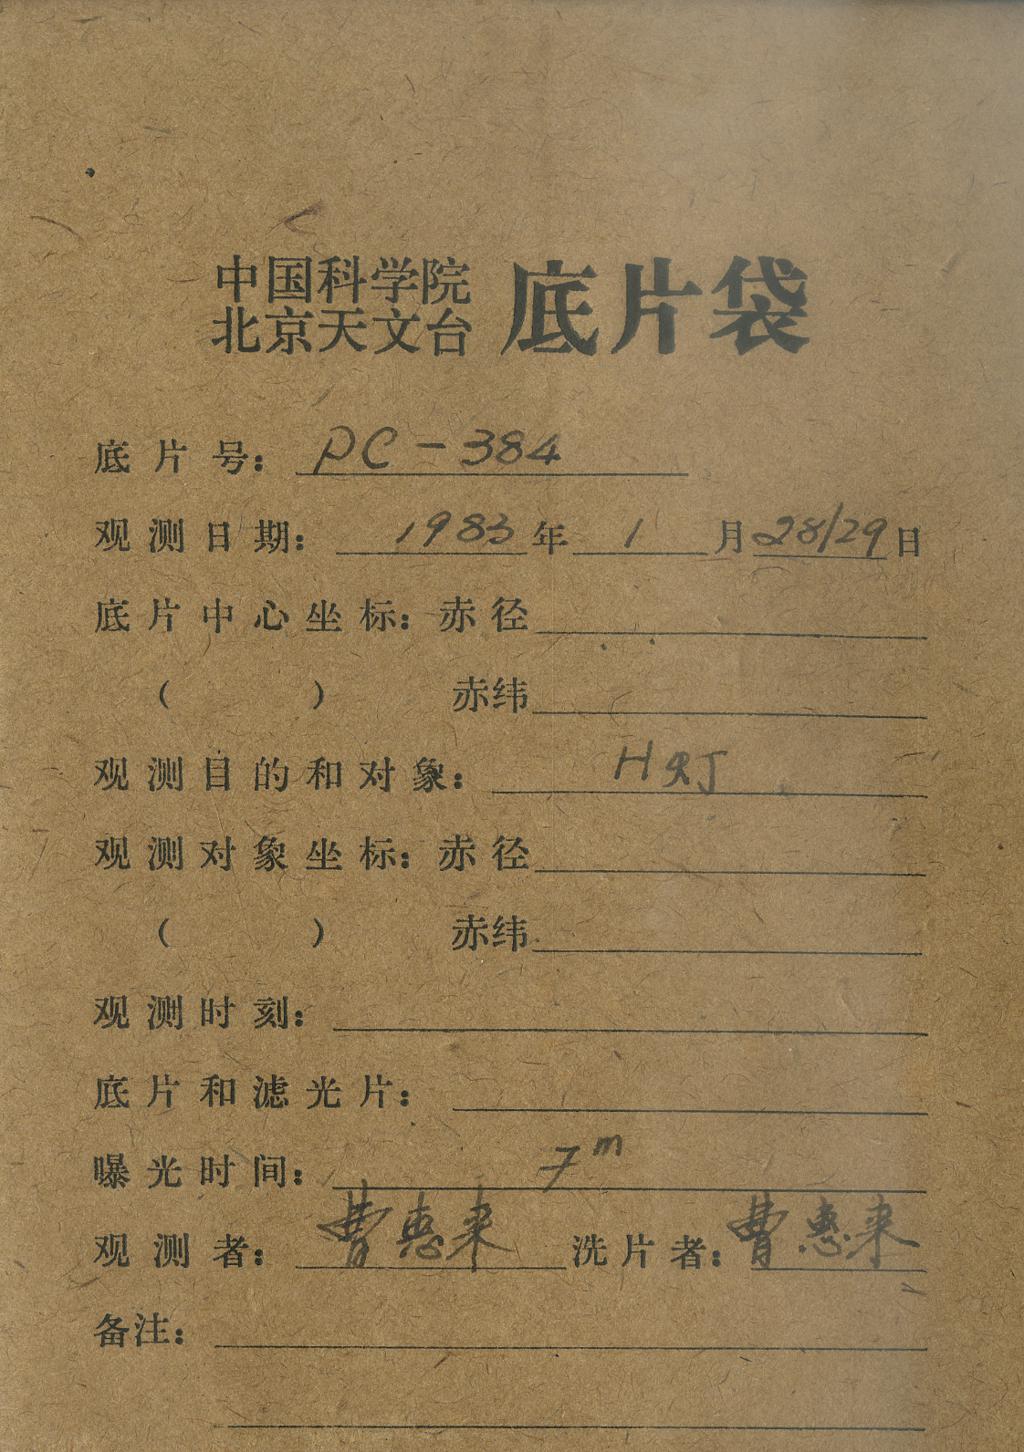 中国科学院
北京天文台 底片袋
底片号: PC-384
观测日期: 1983年 1月28/29日
底片中心坐标: 赤径
( ) 赤纬
观测目的和对象:
观测对象坐标: 赤径
( ) 赤纬
观测时刻:
底片和滤光片:
曝光时间: 7m
观测者: 曹惠来 洗片者: 曹惠来
备注: